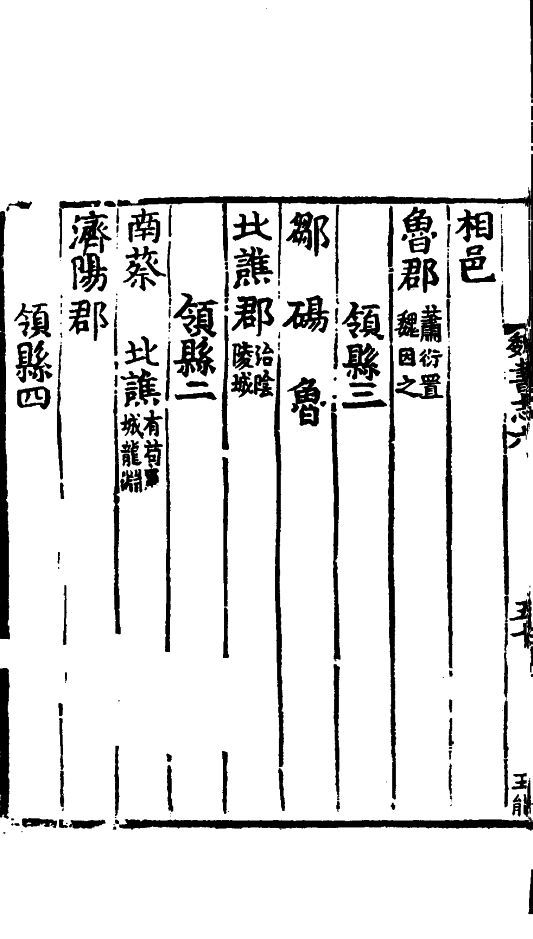 相邑
魯郡 蕭衍置魏因之
領縣三
鄒 碭 魯
北譙郡 治陰陵城
領縣二
南蔡 北譙 有苟軍城龍淵
濟陽郡
領縣四
魏書志六
五十
王能